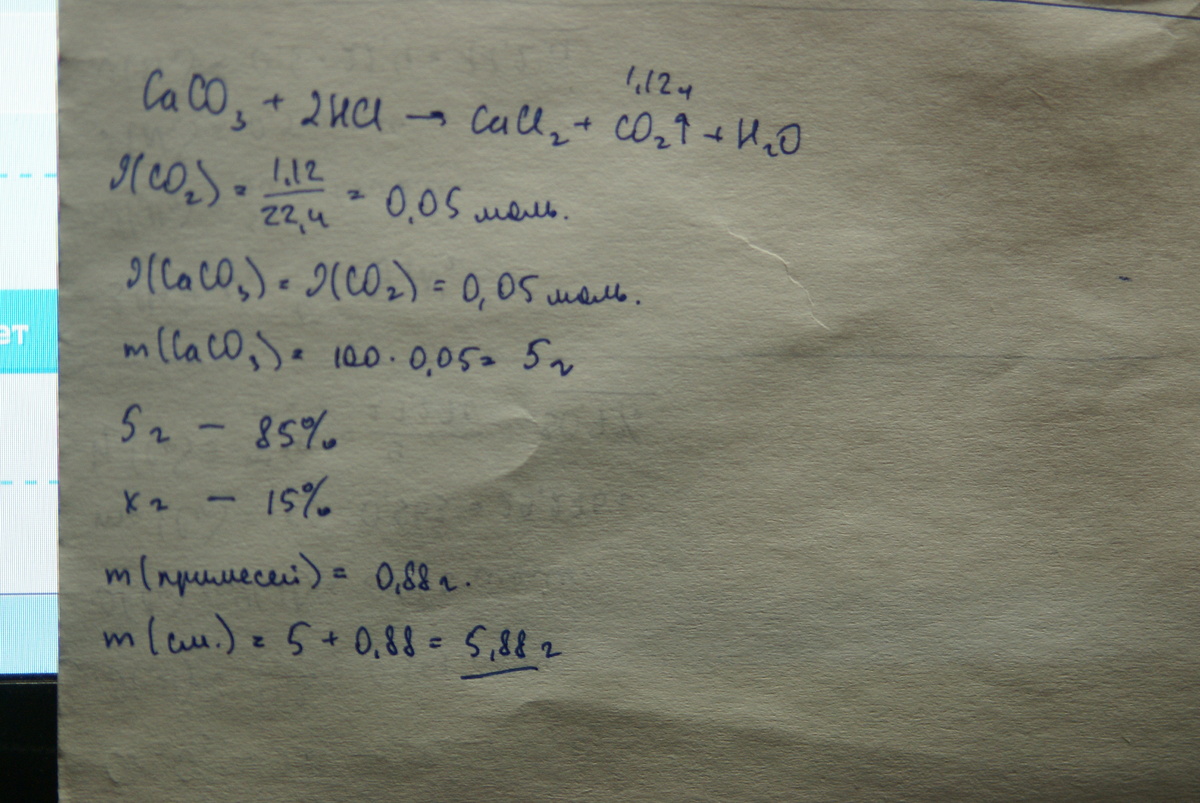 1,12 л
CaCO₃ + 2HCl → CaCl₂ + CO₂↑ + H₂O
ν(CO₂) = 1,12 / 22,4 = 0,05 моль.
ν(CaCO₃) = ν(CO₂) = 0,05 моль.
m(CaCO₃) = 100 · 0,05 = 5 г
5 г – 85%
х г – 15%
m(примесей) = 0,88 г.
m(см.) = 5 + 0,88 = 5,88 г
ет